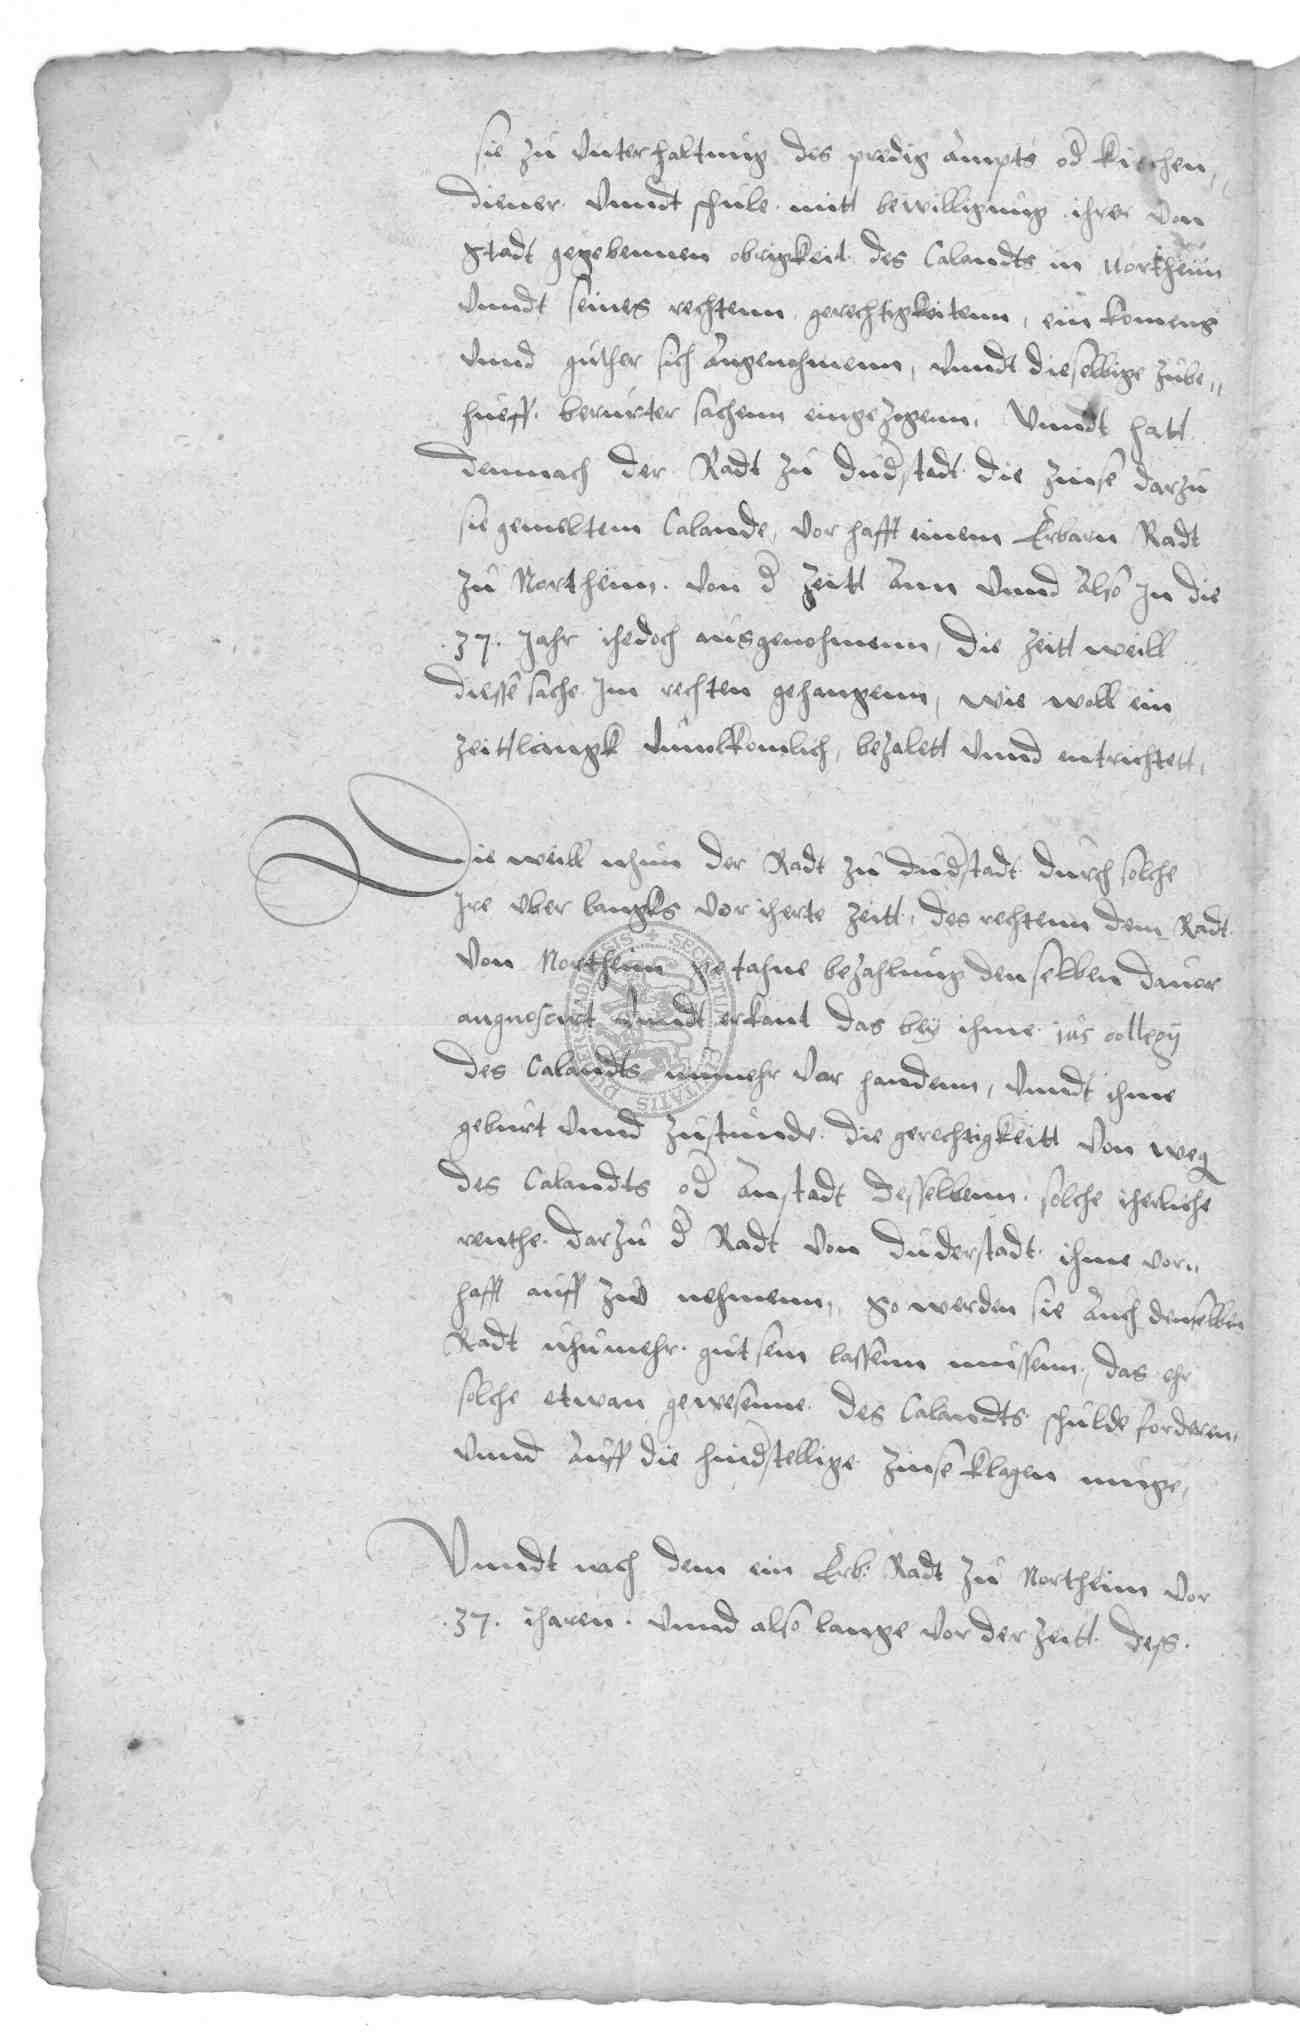 sie zu vnterhaltung des predig ampts od kirchen,,
diener vnndt schule mitt bewilligung ihrer von
Gtadt gegebennen obrigkeit des Calandts in Northeim
vnndt seines rechtenn gerechtigkeitenn, ein komens
vnnd guther sich angenohmenn, vnndt dieselbige zube,,
hueff berurter sachenn eingezogenn, Vnndt hatt
dennach der Radt zu dudstadt die zinse darzu
sie gemeltem Calande, vorhafft einem Erbarn Radt
zu Northeim von d zeitt ann vnnd also In die
.37. Jahr ihedoch ausgenohmenn, die zeitt weill
diesse sache Im rechten gehangenn, wie woll ein
zeittlangk vnuolkomlich, bezalett vnnd entrichtett,
Die weill nhun der Radt zu dudstadt durch solche
Ire vber langks vor iherte zeitt, des rechtenn dem Radt
von Northeim getahne bezahlung denselben dauor
angnoscirt vnndt erkant das bey ihme jus collegij
des Calandts nunmehr vor handenn, vnndt ihme
geburt vnnd zustunde die gerechtigkeitt von weg
des Calandts od anstadt desselbenn solche iherliche
renthe darzu d Radt von duderstadt ihme vor,,
hafft auff zu nehmenn, So werden sie auch denselben
Radt nhumehr gut sein lassenn mussenn, das ehr
solche etwan gewesenne des Calandts schulde forderen,
vnnd auff die hindstellige zinse klagen muge,
Vnndt nach dem ein Erb: Radt zu Northeim vor
.37. iharen vnnd also lange vor der zeitt dess
SECRETUM CIVITATIS